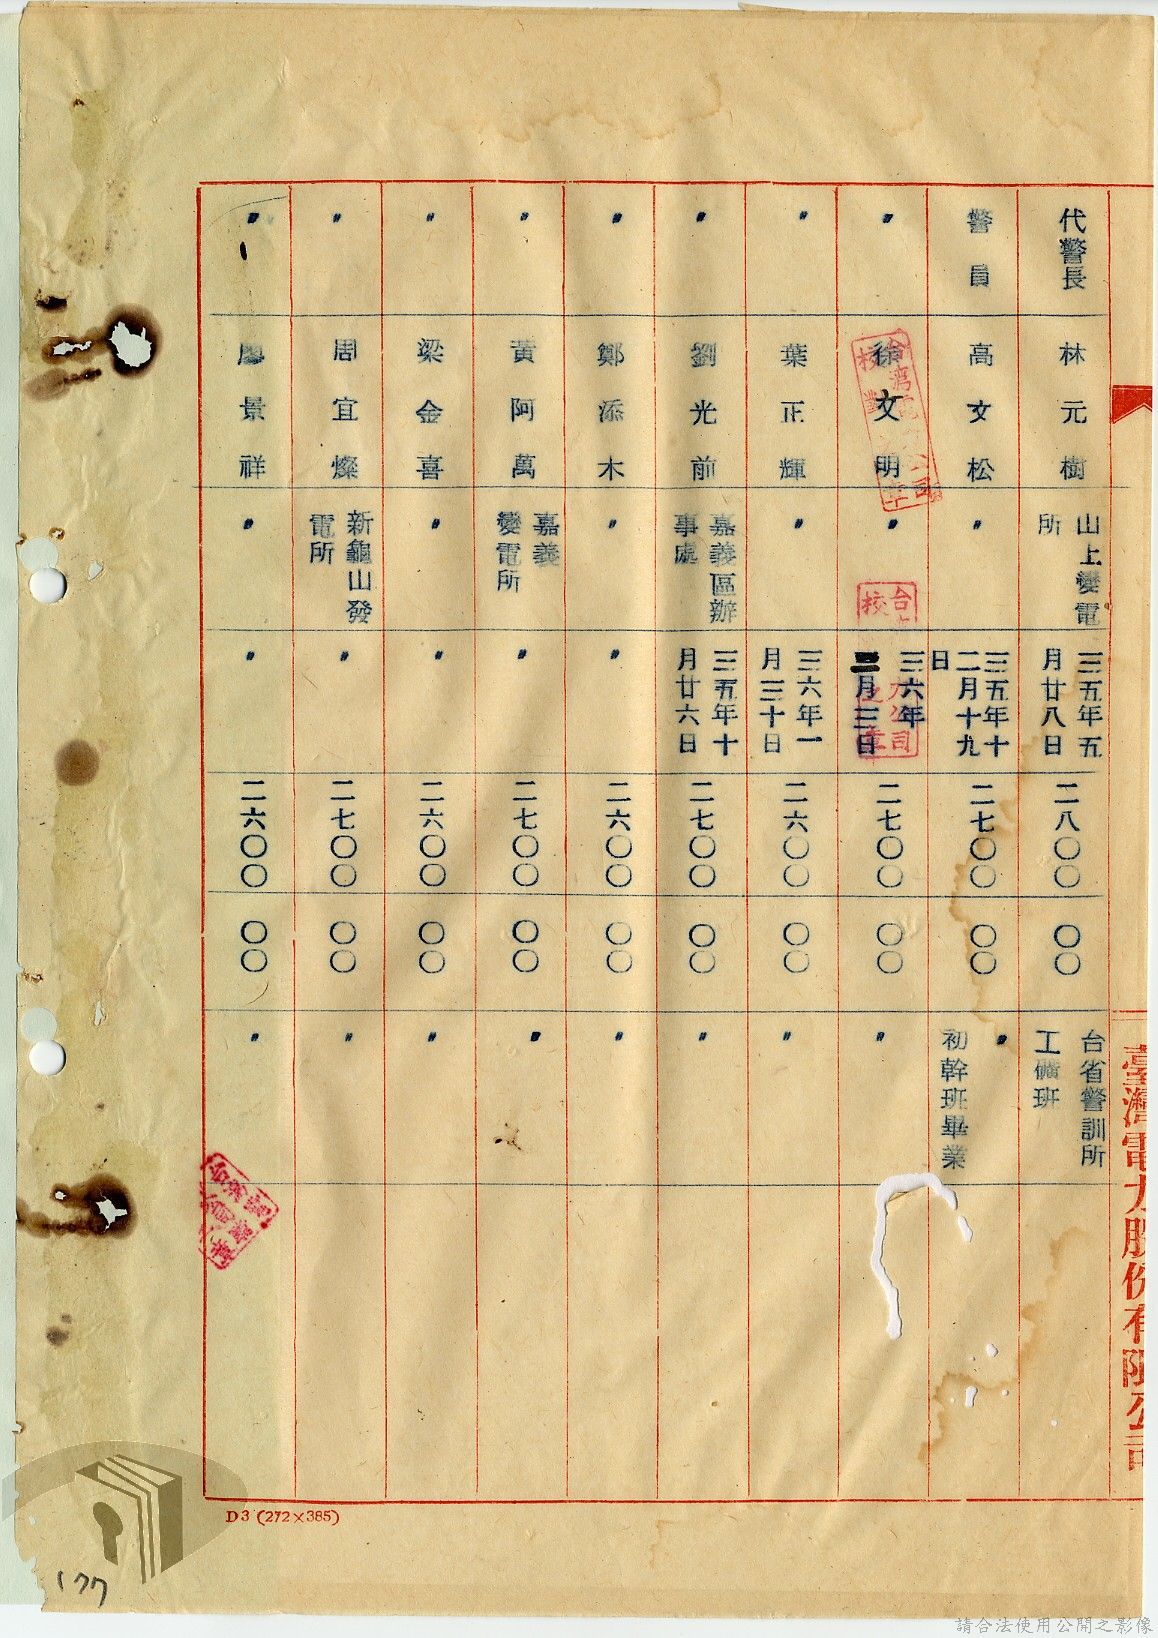 代警長 林元樹 山上變電所 三五年五月廿八日 二八〇〇 〇〇 台省警訓所工礦班
警員 高文松 〃 三五年十二月十九日 二七〇〇 〇〇 〃初幹班畢業
〃 徐文明 〃 三六年三月三日 二七〇〇 〇〇 〃
〃 葉正輝 〃 三六年一月三十日 二六〇〇 〇〇 〃
〃 劉光前 嘉義區辦事處 三五年十月廿六日 二七〇〇 〇〇 〃
〃 鄭添木 〃 二六〇〇 〇〇 〃
〃 黃阿萬 嘉義變電所 〃 二七〇〇 〇〇 〃
〃 梁金喜 〃 〃 二六〇〇 〇〇 〃
〃 周宜燦 新龜山發電所 〃 二七〇〇 〇〇 〃
〃 廖景祥 〃 〃 二六〇〇 〇〇 〃
臺灣電力股份有限公司
D3 (272×385)
177
請合法使用公開之影像